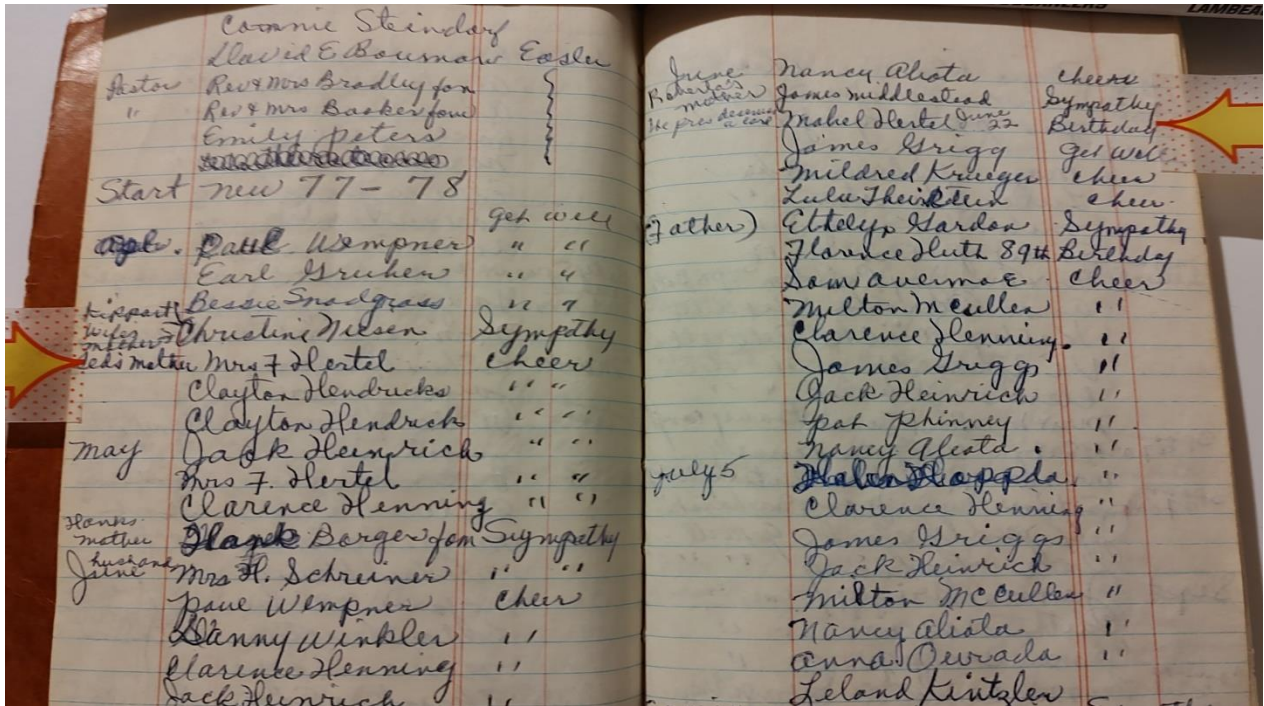 Connie Steindorf
David E Bouman Easter
Pastor Rev & Mrs Bradley fam
" Rev & Mrs Baaker fam
Emily Peters
Start new 77 - 78
get well
Paul Wempner " "
Earl Gruhen " "
Bessie Snodgrass " "
wifes mother Christine Nielsen Sympathy
Teds mother Mrs F Hertel cheer
Clayton Hendricks " "
Clayton Hendrick " "
May Jack Heinrich " "
Mrs F. Hertel " "
Clarence Henning " "
Hanks mother Hank Borger fam Sympathy
husband
June Mrs H. Schreiner " "
Paul Wempner cheer
Danny Winkler "
Clarence Henning "
Jack Heinrich "
LAMBEA
June Nancy Aliota cheer
Roberta's mother James Middlestead Sympathy
Mabel Hertel June 22 Birthday
James Grigg get well
Mildred Krueger cheer
Lulu cheer
Father) Ethelyn Gardon Sympathy
Florence Huth 89th Birthday
Sam cheer
Milton McCullen "
Clarence Henning. "
James Griggs "
Jack Heinrich "
Pat Phinney "
Nancy Aliota. "
July 5 "
Clarence Henning "
James Griggs "
Jack Heinrich "
Milton McCullen "
Nancy Aliota "
Anna "
Leland Kintzler